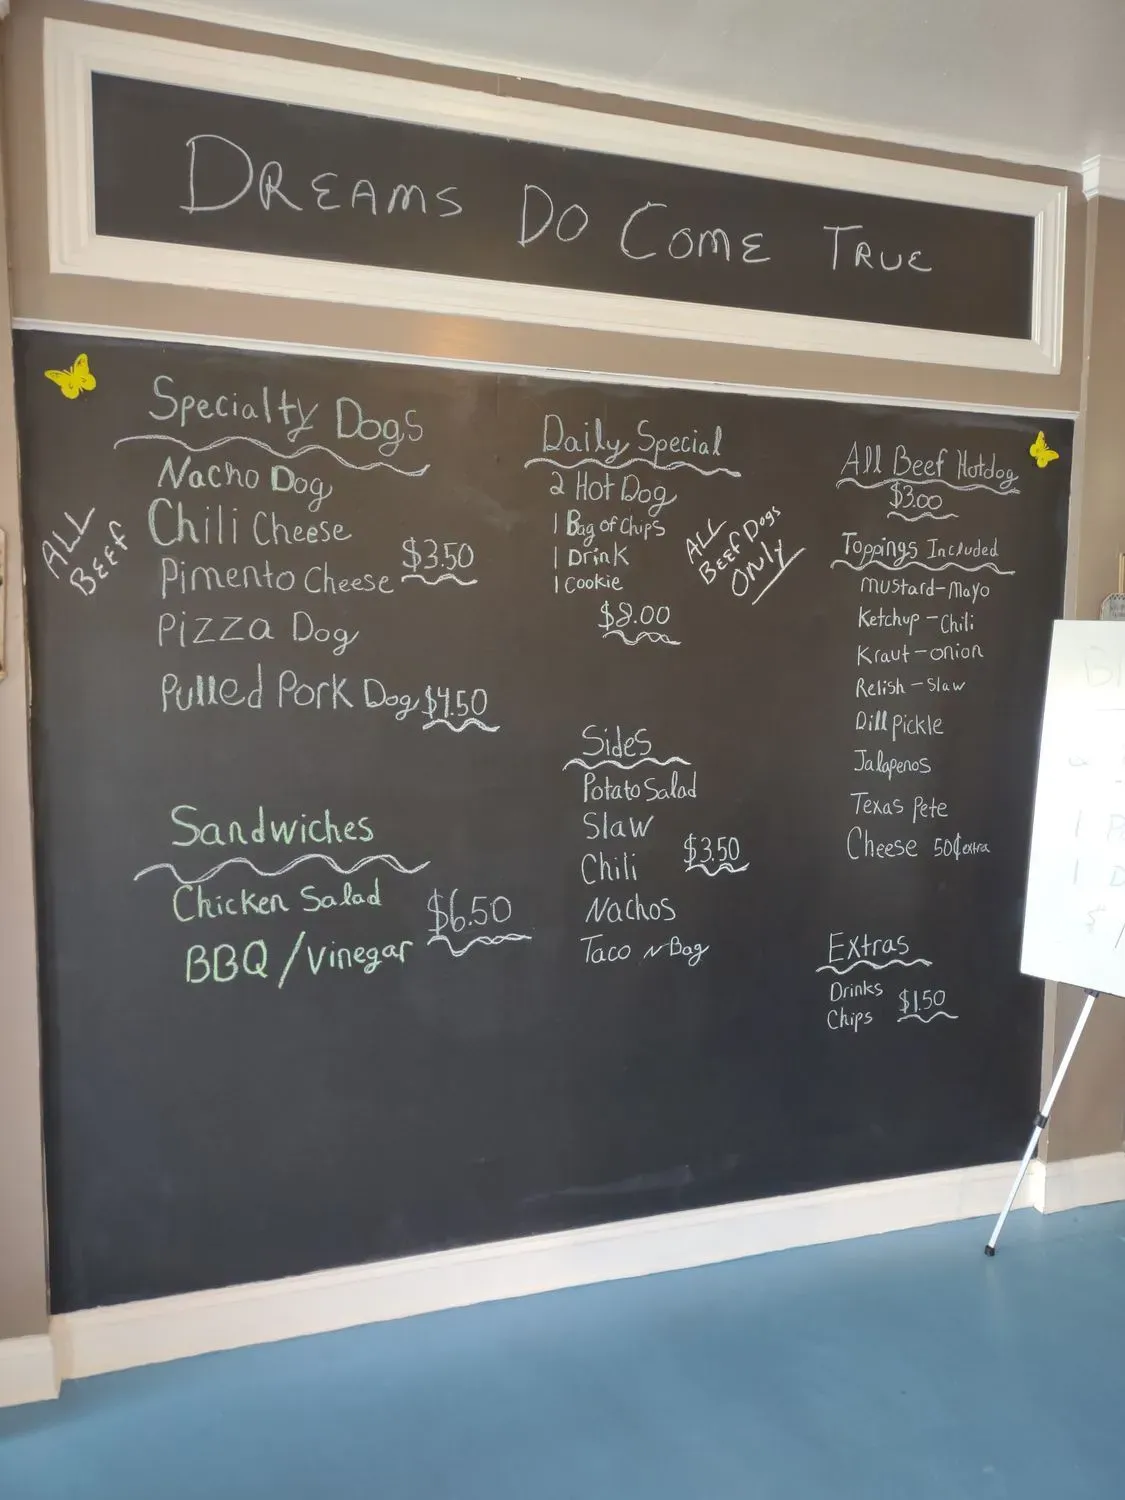 DREAMS DO COME TRUE
Specialty Dogs
ALL
BEEF
Nacho Dog
Chili Cheese
Pimento Cheese
$3.50
Pizza Dog
Pulled Pork Dog $4.50
Sandwiches
Chicken Salad
BBQ/Vinegar
$6.50
Daily Special
2 Hot Dog
1 Bag of chips
1 Drink
1 cookie
$8.00
ALL
BEEF Dogs
ONLY
Sides
Potato Salad
Slaw
Chili
$3.50
Nachos
Taco N Bag
All Beef Hotdog
$3.00
Toppings Included
Mustard-Mayo
Ketchup-Chili
Kraut-onion
Relish-Slaw
Dill Pickle
Jalapenos
Texas Pete
Cheese 50¢ extra
Extras
Drinks
Chips
$1.50